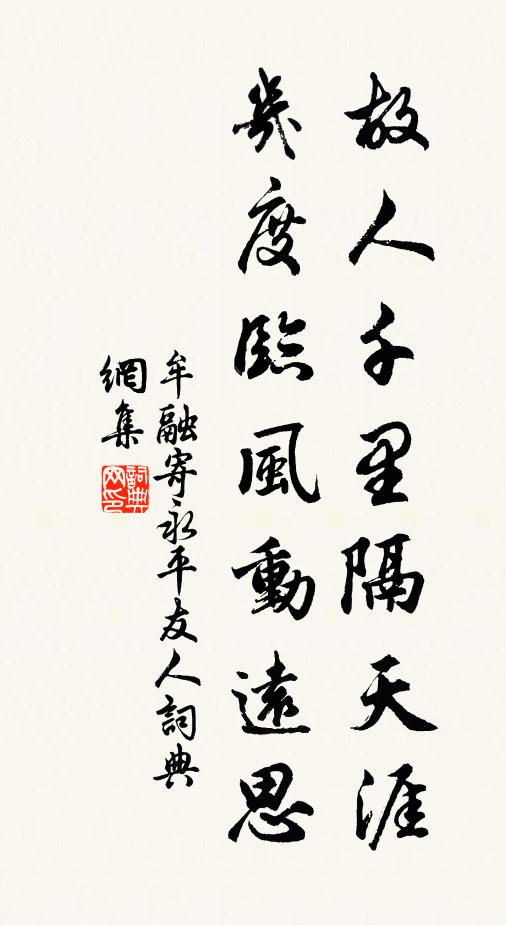 故人千里隔天涯
幾度臨風動遠思
牟融寄永平友人詞典
網集
詞典
网印